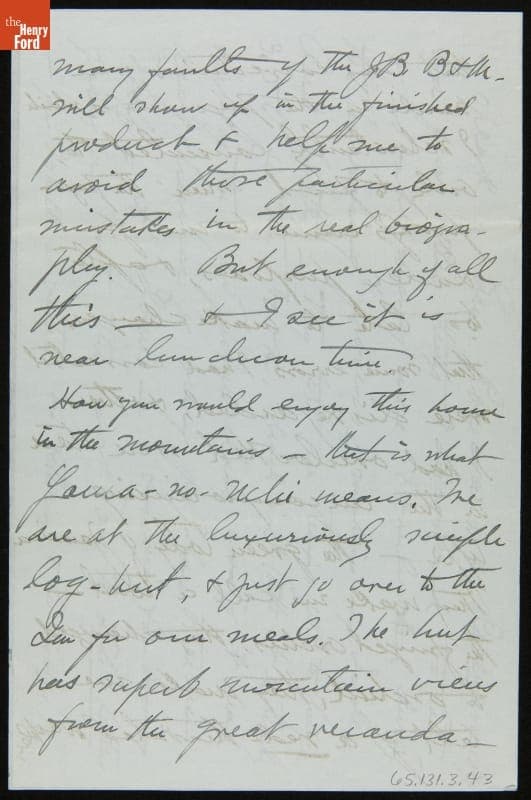 the
Henry
Ford
many faults of the JB B & M.
will show up in the finished
product & help me to
avoid those particular
mistakes in the real biogra-
phy. But enough of all
this — & I see it is
near luncheon time.
How you would enjoy this home
in the mountains — that is what
Yama-no-Uchi means. We
are at the luxuriously simple
log-hut, & just go over to the
Inn for our meals. The hut
has superb mountain views
from the great veranda —
65.131.3.43